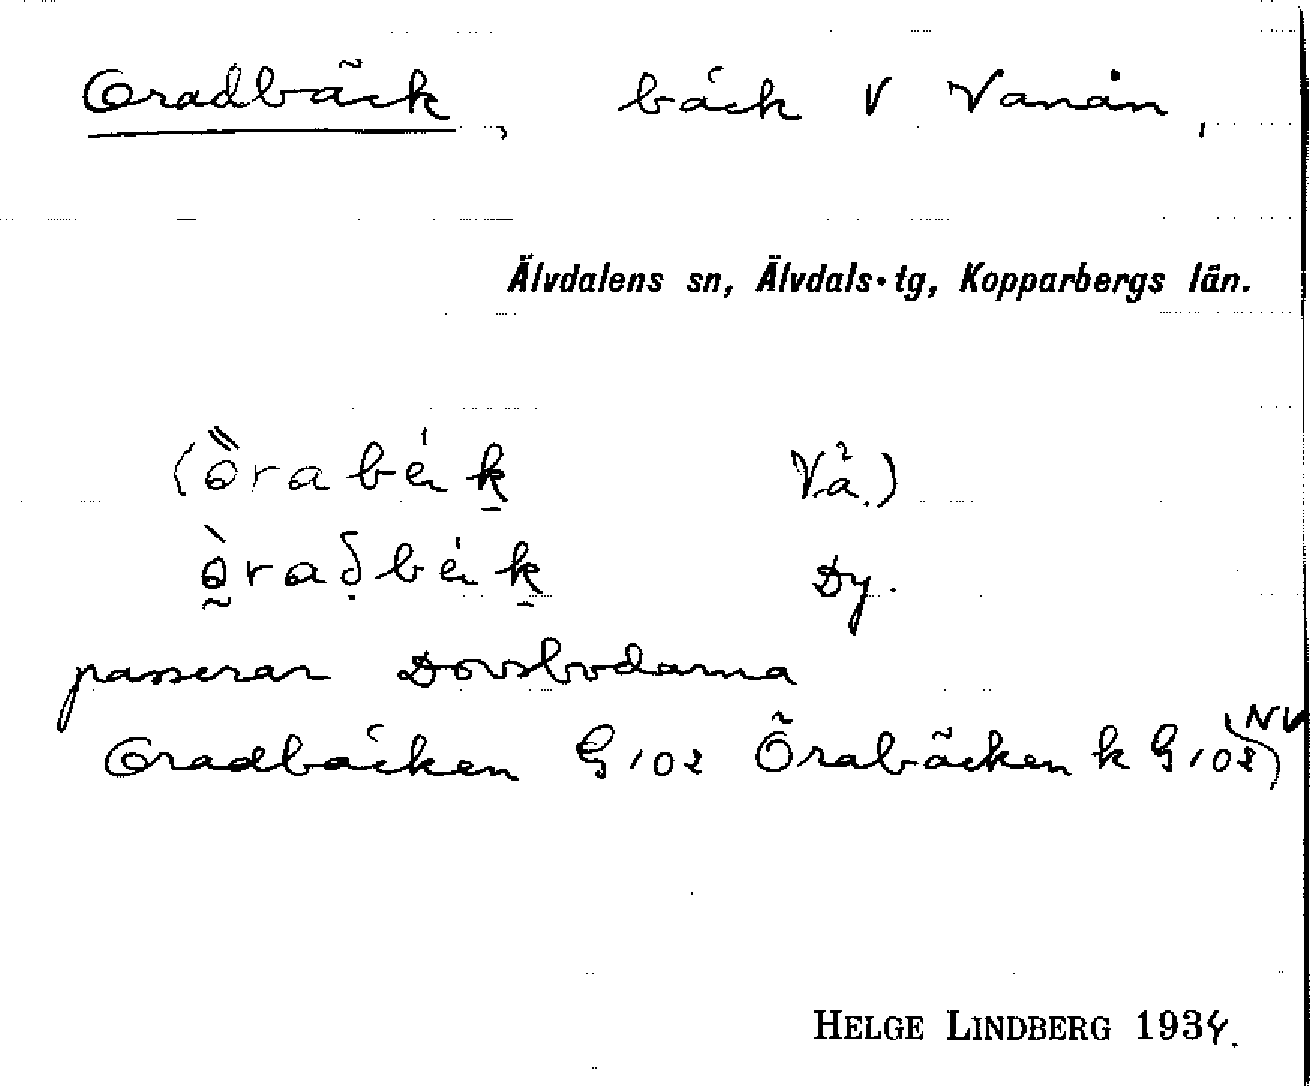 Oradbäck, bäck V Vanån,
Älvdalens sn, Älvdals tg, Kopparbergs län.
(òrabèk Vå.)
òraðbèk Dy.
passerar Dovsbodarna
Oradbäcken G 102 Örabäcken k G 102) NV
HELGE LINDBERG 1934.